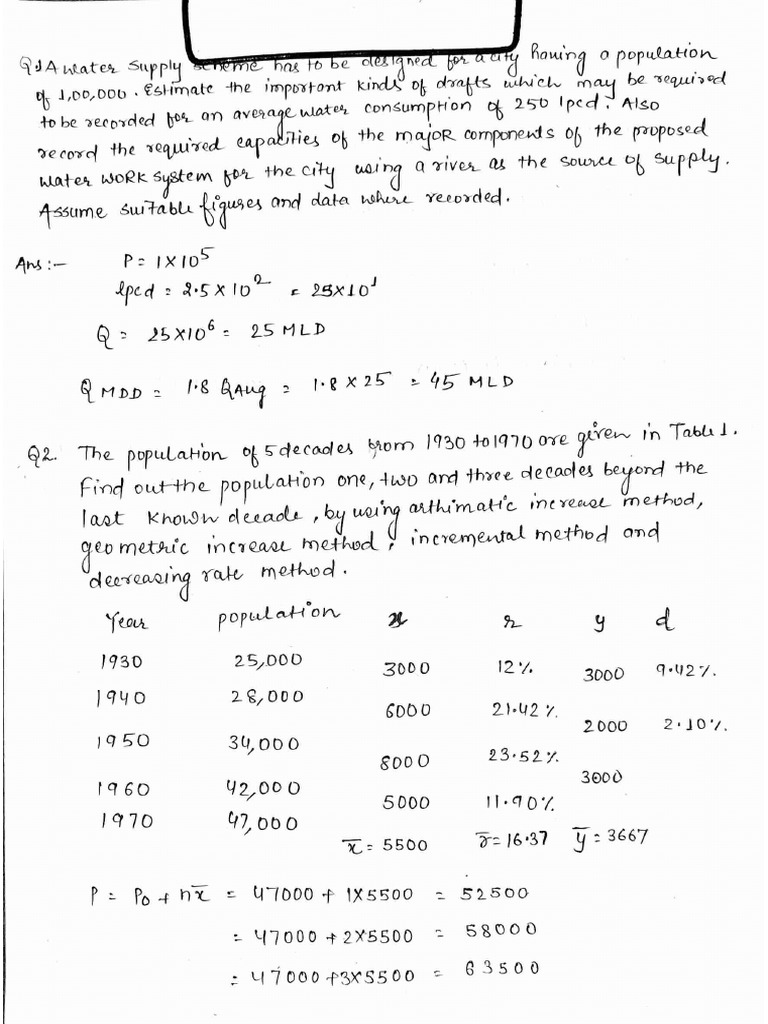 Q1 A water supply scheme has to be designed for a city having a population
of 1,00,000. Estimate the important kinds of drafts which may be required
to be recorded for an average water consumption of 250 lpcd. Also
record the required capacities of the major components of the proposed
water work system for the city using a river as the source of supply.
Assume suitable figures and data where recorded.
Ans :- P = 1×10⁵
lpcd = 2.5×10² = 25×10¹
Q = 25×10⁶ = 25 MLD
Q MDD = 1.8 QAvg = 1.8×25 = 45 MLD
Q2. The population of 5 decades from 1930 to 1970 are given in Table 1.
Find out the population one, two and three decades beyond the
last known decade, by using arthimatic increase method,
geometric increase method, incremental method and
decreasing rate method.
Year population x r y d
1930 25,000
3000 12% 3000 9.42%.
1940 28,000
6000 21.42%. 2000 2.10%.
1950 34,000
8000 23.52%. 3000
1960 42,000
5000 11.90%.
1970 47,000
x̄ = 5500 r̄ = 16.37 ȳ = 3667
P = P₀ + nx̄ = 47000 + 1×5500 = 52500
= 47000 + 2×5500 = 58000
= 47000 + 3×5500 = 63500